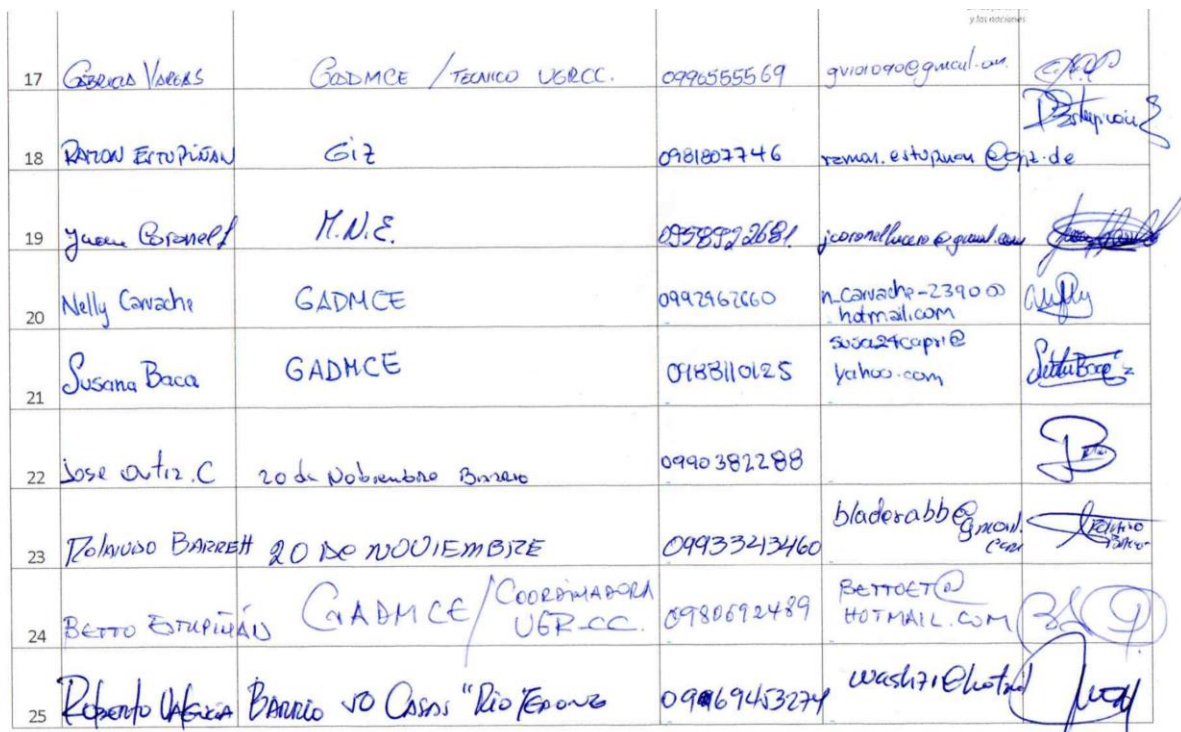 y las naciones
17 Vargas GADMCE / TECNICO UGRCC. 0996555569 gv101090@gmail.com
18 RAMON ESTUPIÑAN GiZ 0981807746 ramon.estupinan@giz.de
19 Coronel M.N.E. 0958922681. jcoronellucero@gmail.com
20 Nelly Carvache GADMCE 0992962660 n_carvache-2390
hotmail.com
21 Susana Baca GADMCE 0983110125 susa24capri@
yahoo.com
22 Jose Ortiz.C 20 de Nobiembre 0990382288
23 Rolando BARREH 20 DE NOVIEMBRE 09933213460 bladerabb@gmail.
com
24 BETTO ESTUPIÑÁN GADMCE / COORDINADORA
UGR-CC. 0980692489 BETTOET@
HOTMAIL.COM
25 Roberto BARRIO 50 CASAS "Rio 0969453274 wash71@hotmail